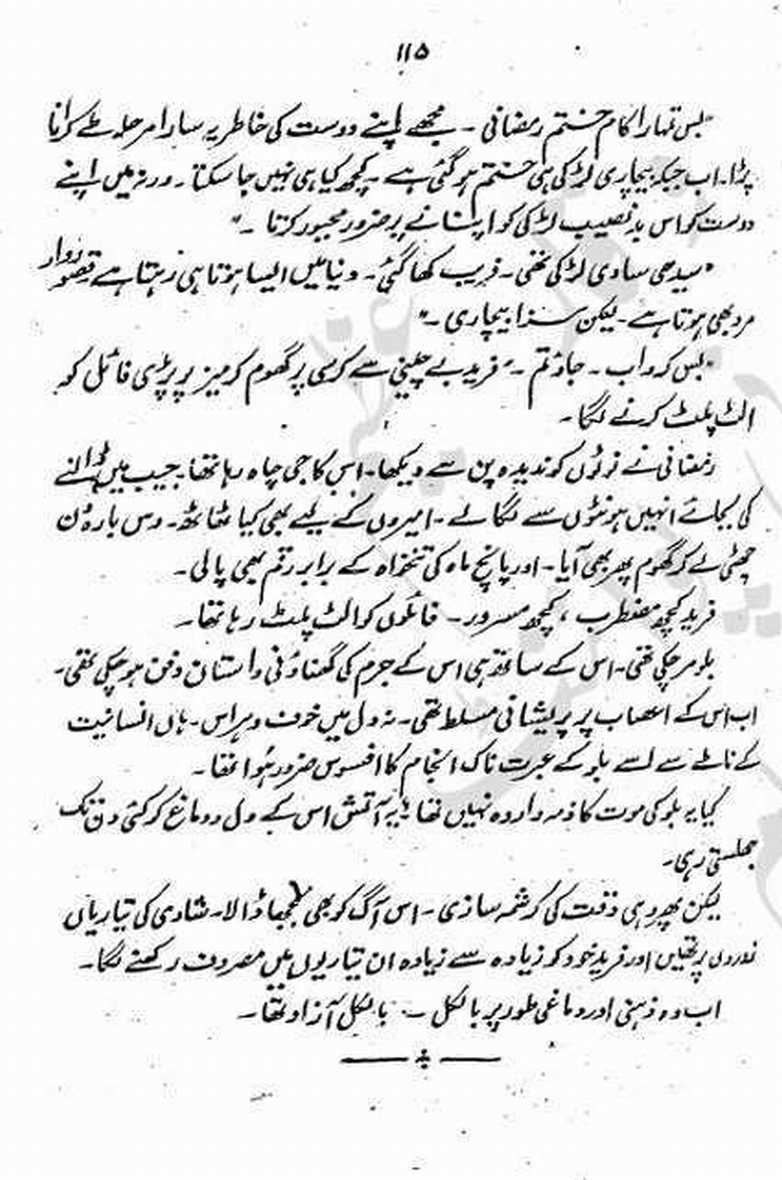 ۱۱۵
"بس تمہارا کام ختم رمضانی۔ مجھے اپنے دوست کی خاطر یہ سارا مرحلہ طے کرانا
پڑا۔ اب جبکہ بیچاری لڑکی ہی ختم ہو گئی ہے۔ کچھ کیا ہی نہیں جا سکتا۔ ورنہ میں اپنے
دوست کو اس بدنصیب لڑکی کو اپنانے پر ضرور مجبور کرتا۔"
"سیدھی سادی لڑکی تھی۔ فریب کھا گئی۔ دنیا میں ایسا ہوتا ہی رہتا ہے قصوروار
مرد بھی ہوتا ہے۔ لیکن سزا بیچاری۔"
"بس کرو اب۔ جاؤ تم۔" فرید بے چینی سے کرسی پر گھوم کر میز پر پڑی فائل کو
الٹ پلٹ کرنے لگا۔
رمضانی نے نوٹوں کو ندیدہ پن سے دیکھا۔ اس کا جی چاہ رہا تھا۔ جیب میں ڈالنے
کی بجائے انہیں ہونٹوں سے لگا لے۔ امیروں کے لیے بھی کیا ٹھاٹھ۔ دس بارہ دن
چھٹی لے کر گھوم پھر بھی آیا۔ اور پانچ ماہ کی تنخواہ کے برابر رقم بھی پا لی۔
فرید کچھ مضطرب، کچھ مسرور۔ فائلوں کو الٹ پلٹ رہا تھا۔
بلو مر چکی تھی۔ اس کے ساتھ ہی اس کے جرم کی گھناؤنی داستان دفن ہو چکی تھی۔
اب اس کے اعصاب پر پریشانی مسلط تھی۔ نہ دل میں خوف و ہراس۔ ہاں انسانیت
کے ناطے سے اسے بلو کے عبرت ناک انجام کا افسوس ضرور ہوا تھا۔
کیا یہ بلو کی موت کا ذمہ دار وہ نہیں تھا؟ یہ آتش اس کے دل و دماغ کو کئی دن تک
جھلستی رہی۔
لیکن پھر وہی وقت کی کرشمہ سازی۔ اس آگ کو بھی بجھا ڈالا۔ شادی کی تیاریاں
زوروں پر تھیں اور فرید خود کو زیادہ سے زیادہ ان تیاریوں میں مصروف رکھنے لگا۔
اب وہ ذہنی اور دماغی طور پر بالکل ۔۔ بالکل آزاد تھا۔